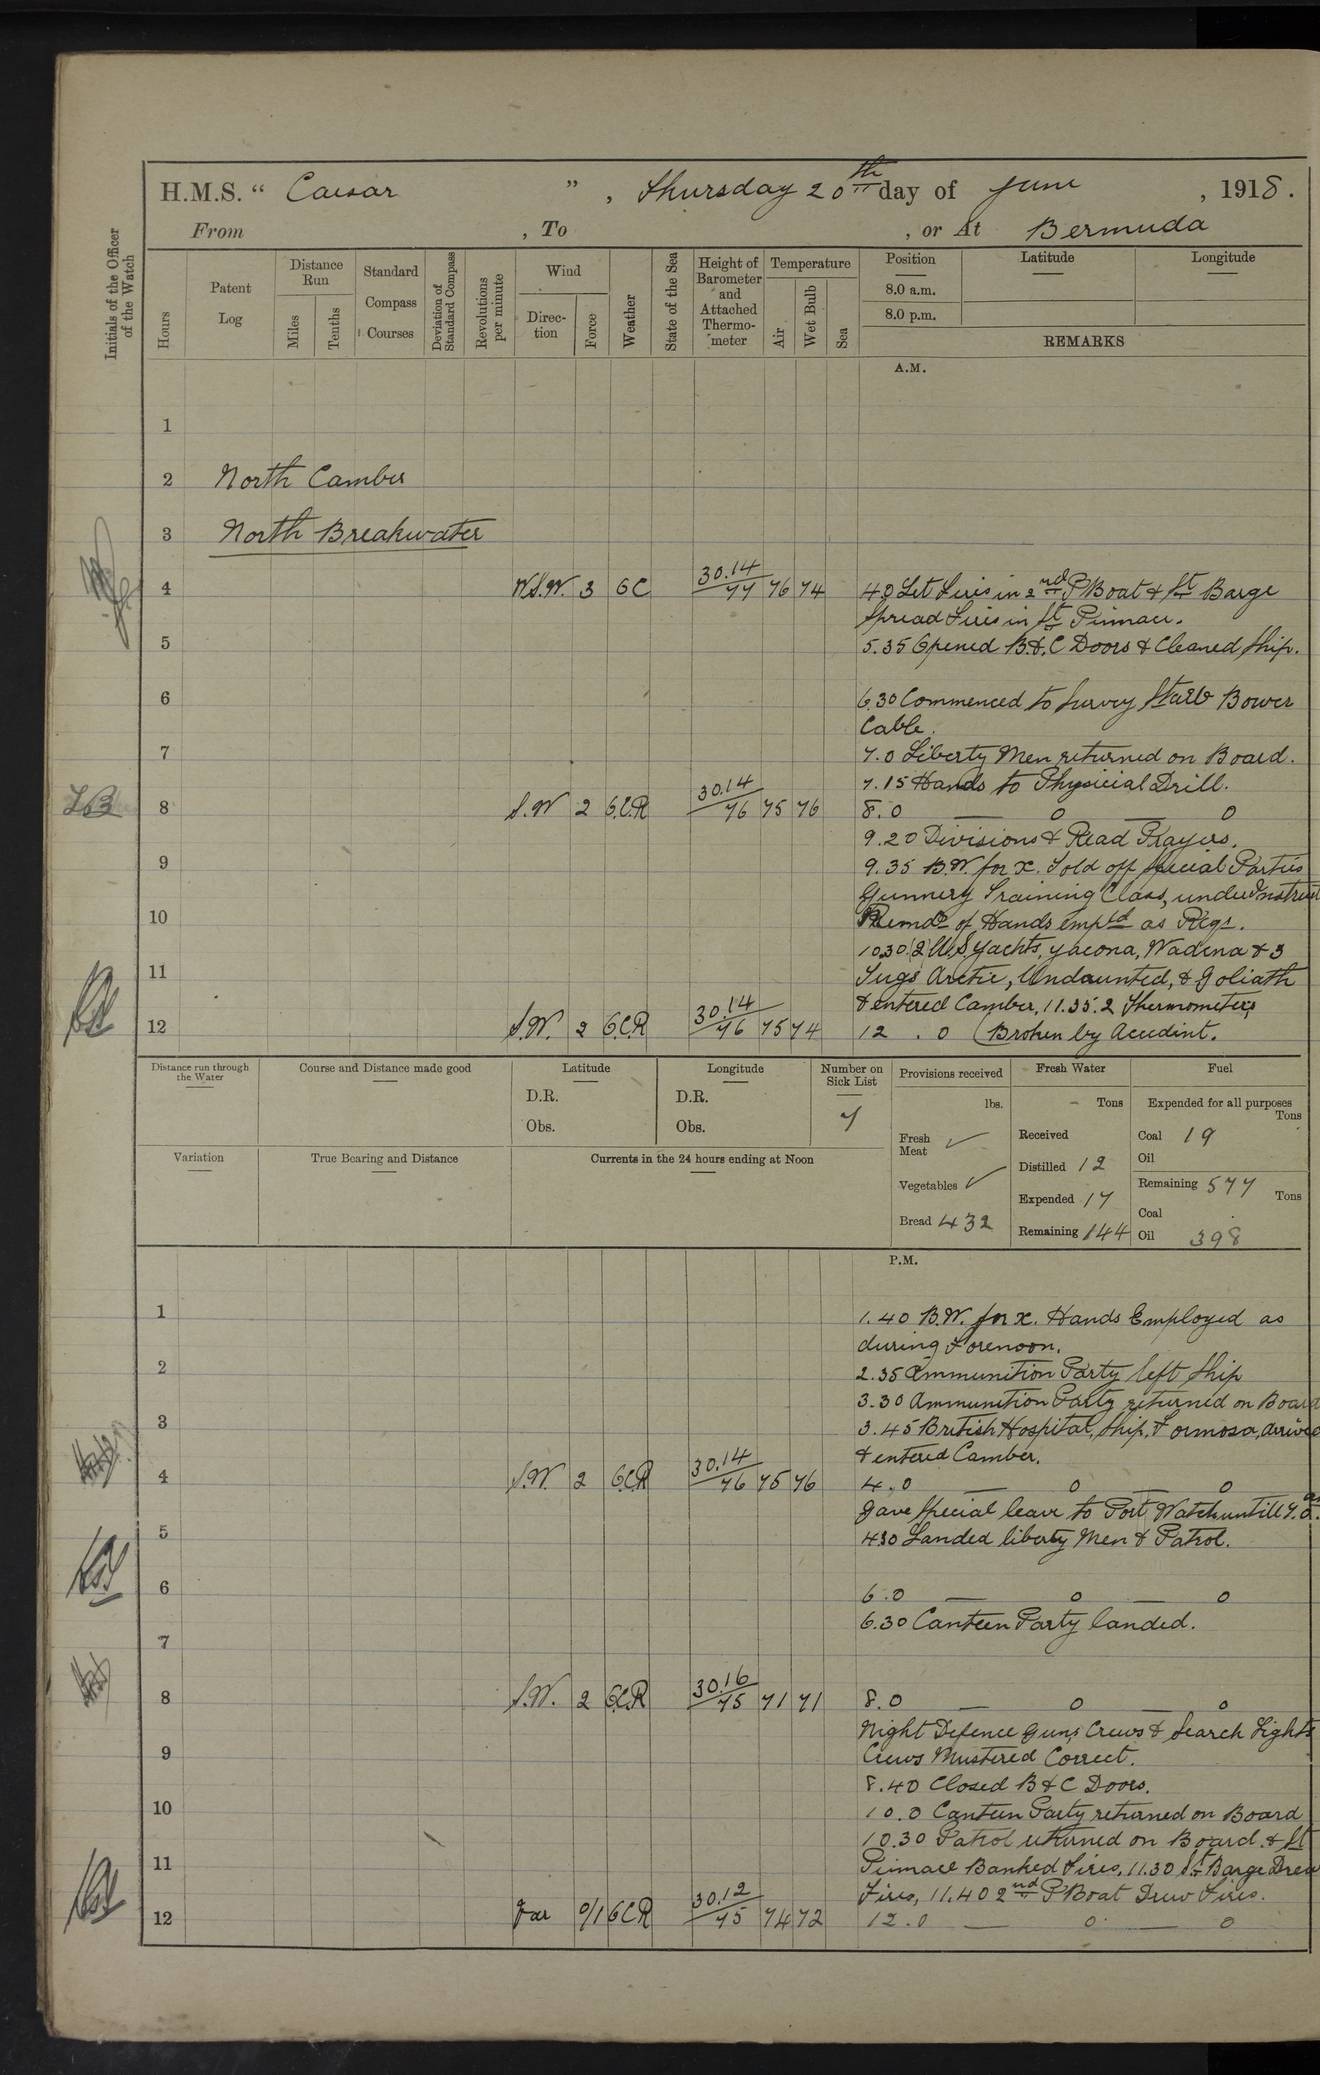 H.M.S. “ Caesar ” , Thursday 20th day of June , 1918.
From , To , or At Bermuda
Initials of the Officer of the Watch
Hours
Patent Log
Distance Run
Miles
Tenths
Standard Compass Courses
Deviation of Standard Compass
Revolutions per minute
Wind
Direc-tion
Force
Weather
State of the Sea
Height of Barometer and Attached Thermo-meter
Temperature
Air
Wet Bulb
Sea
Position
Latitude
Longitude
8.0 a.m.
8.0 p.m.
REMARKS
A.M.
1
2 North Camber
3 North Breakwater
4 W.S.W. 3 BC 30.14/77 76 74 4.0 Let Fires in 2nd P Boat & St Barge
Spread Fires in St Pinnace.
5 5.35 Opened B.&.C Doors & Cleaned Ship.
6 6.30 Commenced to Survey Starb Bower
Cable.
7 7.0 Liberty Men returned on Board.
7.15 Hands to Physicial Drill.
8 S.W 2 B.C.R 30.14/76 75 76 8.0 — 0 — 0
9.20 Divisions & Read Prayers.
9 9.35 B.W. for x. Told off Special Parties
Gunnery Training Class, under Instruct
10 Remdr of Hands empld as Reqr.
10.30 (2 U.S Yachts, Yacona, Wadena & 3
11 Tugs Arctic, Undaunted, & Goliath
& entered Camber, 11.35. 2 Thermometers
12 S.W. 2 B.C.R 30.14/76 75 74 12 . 0 (Broken by Accedint.
Distance run through the Water
Course and Distance made good
Latitude
D.R.
Obs.
Longitude
D.R.
Obs.
Number on Sick List
7
Provisions received
lbs.
Fresh Meat ✓
Vegetables ✓
Bread 432
Fresh Water
Tons
Received
Distilled 12
Expended 17
Remaining 144
Fuel
Expended for all purposes
Tons
Coal 19
Oil
Remaining 577 Tons
Coal
Oil 398
Variation
True Bearing and Distance
Currents in the 24 hours ending at Noon
P.M.
1 1.40 B.W. for x. Hands Employed as
during Forenoon.
2 2.35 Ammunition Party left Ship
3.30 Ammunition Party returned on Board
3 3.45 British Hospital, Ship, Formosa, arrived
& entered Camber.
4 S.W. 2 B.C.R 30.14/76 75 76 4.0 — 0 — 0
Gave Special leave to Port Watch untill 7.0 am.
5 4.30 Landed liberty Men & Patrol.
6 6.0 — 0 — 0
6.30 Canteen Party landed.
7
8 S.W. 2 B.C.R 30.16/75 71 71 8.0 — 0 — 0
Night Defence Guns Crews & Search Lights
9 Crews Mustered Correct.
8.40 Closed B & C Doors.
10 10.0 Canteen Party returned on Board
10.30 Patrol returned on Board. & St
11 Pinnace Banked Fires, 11.30 St Barge Drew
Fires, 11.40 2nd P Boat Drew Fires.
12 Var 0/1 BCR 30.12/75 74 72 12.0 — 0 — 0